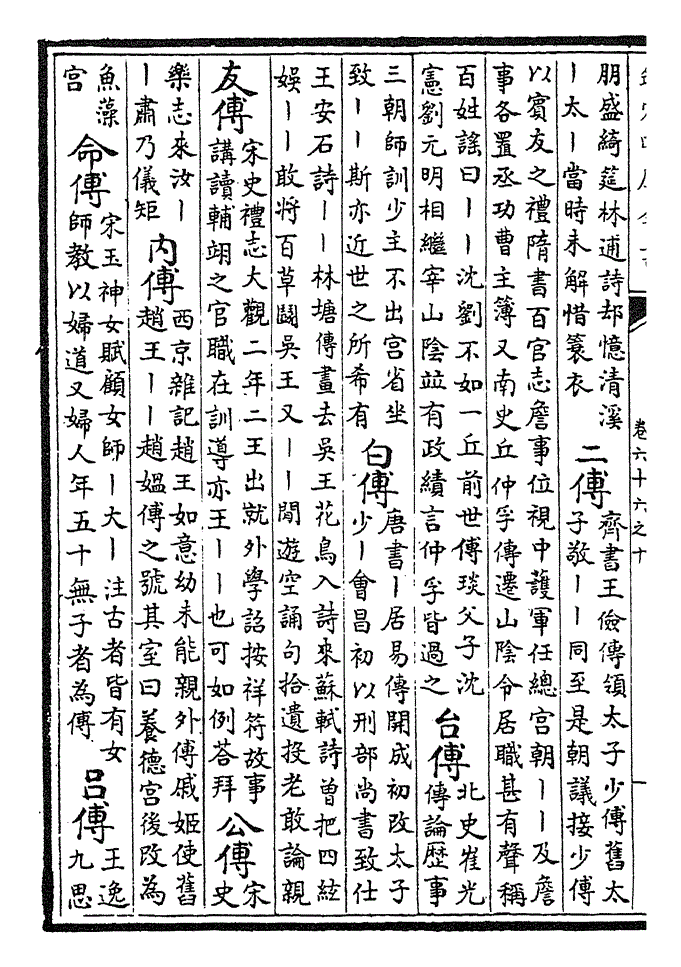 卷六十六之十
朋盛綺筵林逋詩却憶清溪
丨太丨當時未解惜蓑衣
二傅
齊書王儉傳領太子少傅舊太
子敬丨丨同至是朝議接少傅
以賓友之禮隋書百官志詹事位視中護軍任總宫朝丨丨及詹
事各置丞功曹主簿又南史丘仲孚傳遷山陰令居職甚有聲稱
百姓謡曰丨丨沈劉不如一丘前世傅琰父子沈
憲劉元明相繼宰山陰竝有政績言仲孚皆過之
台傅
北史崔光
傳論歷事
三朝師訓少主不出宫省坐
致丨丨斯亦近世之所希有
白傅
唐書丨居易傳開成初改太子
少丨會昌初以刑部尚書致仕
王安石詩丨丨林塘傳畫去吳王花鳥入詩來蘇軾詩曾把四絃
娱丨丨敢將百草鬭吳王又丨丨閒遊空誦句拾遺投老敢論親
友傅
宋史禮志大觀二年二王出就外學詔按祥符故事
講讀輔翊之官職在訓導亦王丨丨也可如例荅拜
公傅
宋
史
樂志來汝丨
丨肅乃儀矩
内傅
西京雜記趙王如意幼未能親外傅戚姬使舊
趙王丨丨趙媼傅之號其室曰養德宫後改為
魚藻
宫
命傅
宋玉神女賦顧女師丨大丨注古者皆有女
師教以婦道又婦人年五十無子者為傅
吕傅
王逸
九思